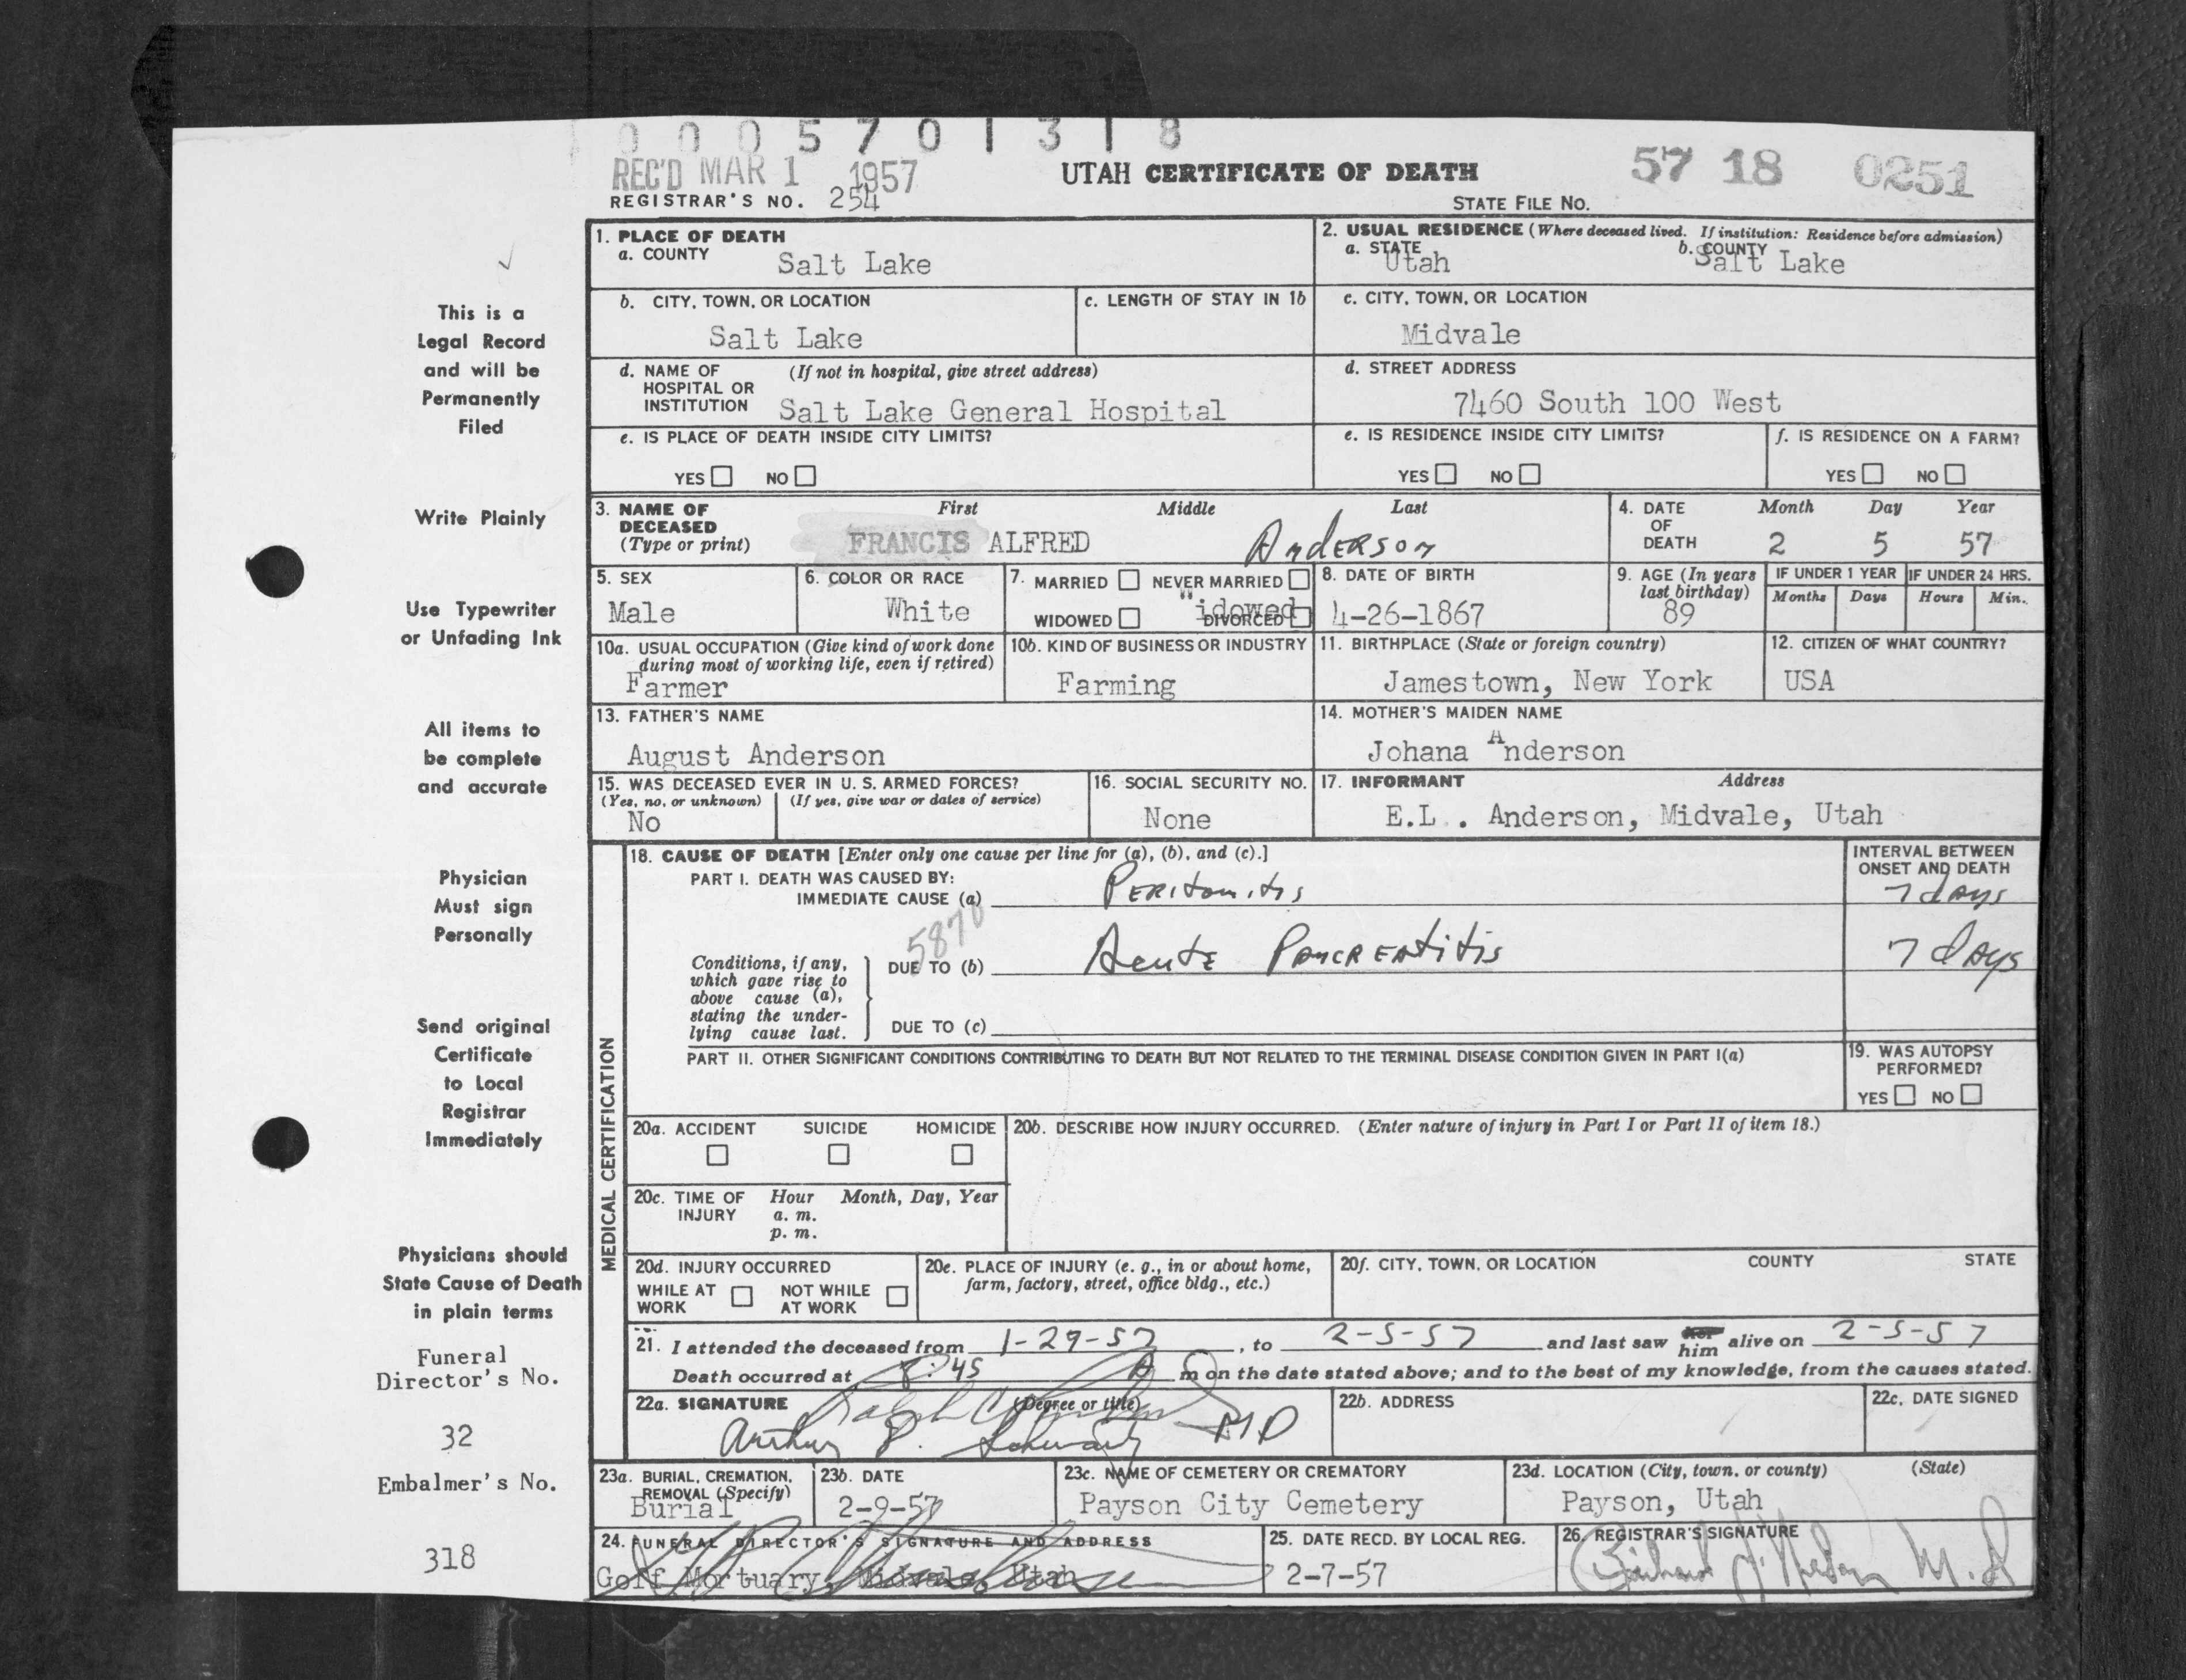 0 0 0 5 7 0 1 3 1 8
REC'D MAR 1 1957
UTAH CERTIFICATE OF DEATH
57 18 0251
REGISTRAR'S NO. 254
STATE FILE NO.
This is a
Legal Record
and will be
Permanently
Filed
Write Plainly
Use Typewriter
or Unfading Ink
All items to
be complete
and accurate
Physician
Must sign
Personally
Send original
Certificate
to Local
Registrar
Immediately
Physicians should
State Cause of Death
in plain terms
Funeral
Director's No.
32
Embalmer's No.
318
1. PLACE OF DEATH
a. COUNTY Salt Lake
2. USUAL RESIDENCE (Where deceased lived. If institution: Residence before admission)
a. STATE Utah b. COUNTY Salt Lake
b. CITY, TOWN, OR LOCATION
Salt Lake
c. LENGTH OF STAY IN 1b
c. CITY, TOWN, OR LOCATION
Midvale
d. NAME OF (If not in hospital, give street address)
HOSPITAL OR
INSTITUTION Salt Lake General Hospital
d. STREET ADDRESS
7460 South 100 West
e. IS PLACE OF DEATH INSIDE CITY LIMITS?
YES NO
e. IS RESIDENCE INSIDE CITY LIMITS?
YES NO
f. IS RESIDENCE ON A FARM?
YES NO
3. NAME OF First Middle Last
DECEASED
(Type or print) FRANCIS ALFRED Anderson
4. DATE Month Day Year
OF
DEATH 2 5 57
5. SEX
Male
6. COLOR OR RACE
White
7. MARRIED NEVER MARRIED
WIDOWED DIVORCED
"idowed
8. DATE OF BIRTH
4-26-1867
9. AGE (In years
last birthday)
89
IF UNDER 1 YEAR IF UNDER 24 HRS.
Months Days Hours Min.
10a. USUAL OCCUPATION (Give kind of work done
during most of working life, even if retired)
Farmer
10b. KIND OF BUSINESS OR INDUSTRY
Farming
11. BIRTHPLACE (State or foreign country)
Jamestown, New York
12. CITIZEN OF WHAT COUNTRY?
USA
13. FATHER'S NAME
August Anderson
14. MOTHER'S MAIDEN NAME
Johana Anderson
15. WAS DECEASED EVER IN U. S. ARMED FORCES?
(Yes, no, or unknown) (If yes, give war or dates of service)
No
16. SOCIAL SECURITY NO.
None
17. INFORMANT Address
E.L . Anderson, Midvale, Utah
MEDICAL CERTIFICATION
18. CAUSE OF DEATH [Enter only one cause per line for (a), (b), and (c).]
PART I. DEATH WAS CAUSED BY:
IMMEDIATE CAUSE (a) Peritonitis
INTERVAL BETWEEN
ONSET AND DEATH
7 days
5870
Conditions, if any,
which gave rise to
above cause (a),
stating the under-
lying cause last.
DUE TO (b) Acute Pancreatitis
7 days
DUE TO (c)
PART II. OTHER SIGNIFICANT CONDITIONS CONTRIBUTING TO DEATH BUT NOT RELATED TO THE TERMINAL DISEASE CONDITION GIVEN IN PART I(a)
19. WAS AUTOPSY
PERFORMED?
YES NO
20a. ACCIDENT SUICIDE HOMICIDE
20b. DESCRIBE HOW INJURY OCCURRED. (Enter nature of injury in Part I or Part II of item 18.)
20c. TIME OF Hour Month, Day, Year
INJURY a. m.
p. m.
20d. INJURY OCCURRED
WHILE AT NOT WHILE
WORK AT WORK
20e. PLACE OF INJURY (e. g., in or about home,
farm, factory, street, office bldg., etc.)
20f. CITY, TOWN, OR LOCATION COUNTY STATE
21. I attended the deceased from 1-29-57, to 2-5-57 and last saw her him alive on 2-5-57
Death occurred at 8:45 A m on the date stated above; and to the best of my knowledge, from the causes stated.
22a. SIGNATURE (Degree or title)
Ralph C
Arthur P. Schwartz MD
22b. ADDRESS
22c. DATE SIGNED
23a. BURIAL, CREMATION,
REMOVAL (Specify)
Burial
23b. DATE
2-9-57
23c. NAME OF CEMETERY OR CREMATORY
Payson City Cemetery
23d. LOCATION (City, town, or county) (State)
Payson, Utah
24. FUNERAL DIRECTOR'S SIGNATURE AND ADDRESS
Goff Mortuary, Midvale, Utah
25. DATE RECD. BY LOCAL REG.
2-7-57
26. REGISTRAR'S SIGNATURE
M.D